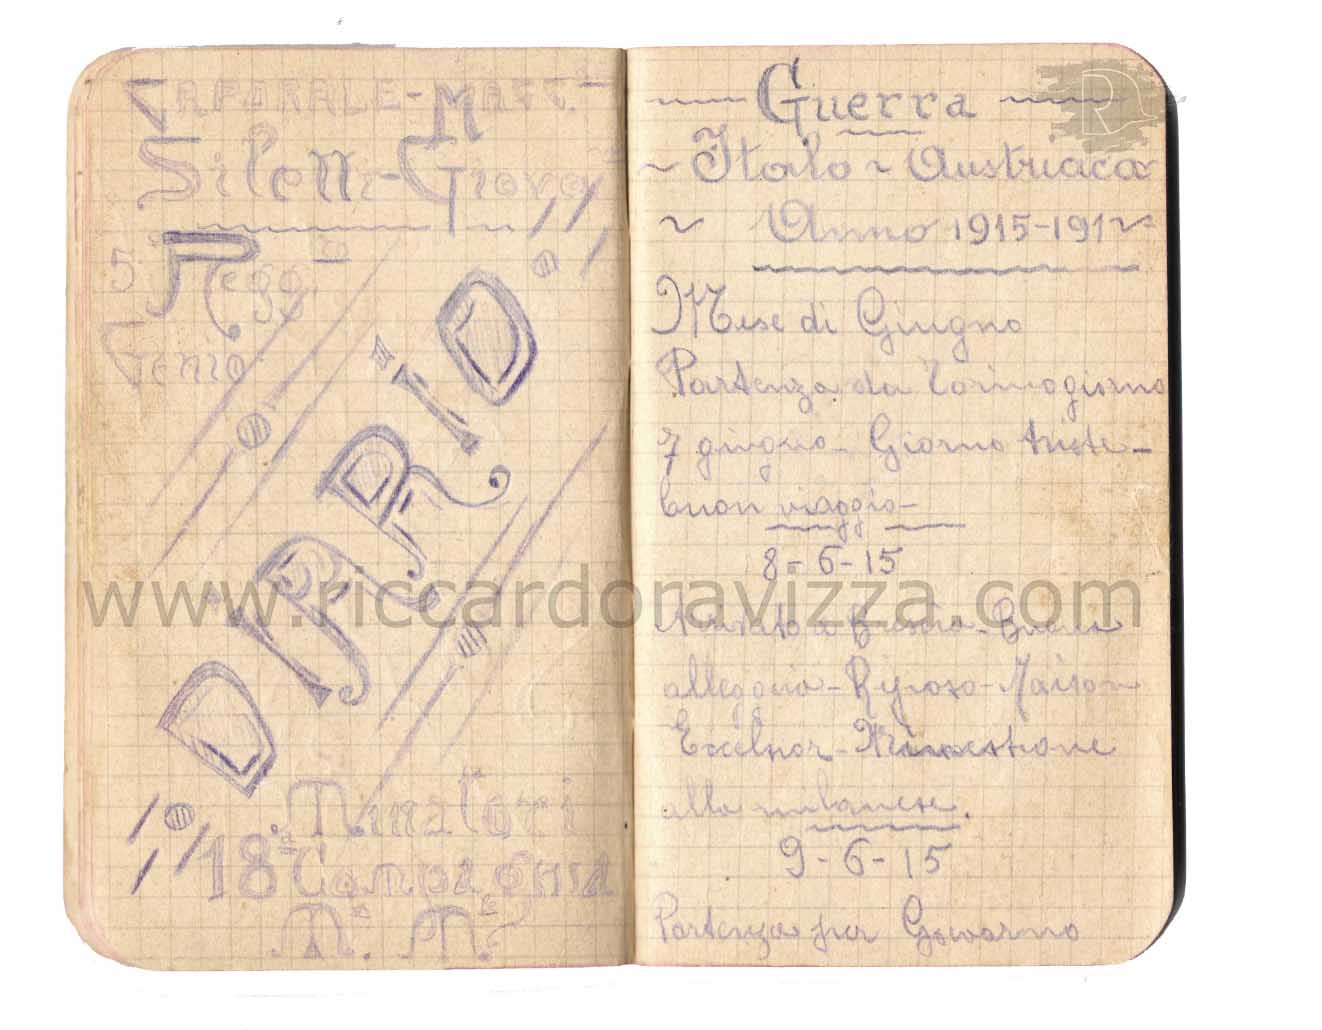 CAPORALE-MAGG.
Siletti-Giovº
5º Regg.to
Genio
DIARIO
Minatori
18ª Compagnia
M. M.
Guerra
Italo ~ Austriaca
Anno 1915-191
Mese di Giugno
Partenza da Torino giorno
7 giugno - Giorno triste -
buon viaggio -
8-6-15
a Brescia -
alloggio - Riposo - Maison
Excelsior -
alla milanese.
9-6-15
Partenza per Gavarno
www.riccardoravizza.com